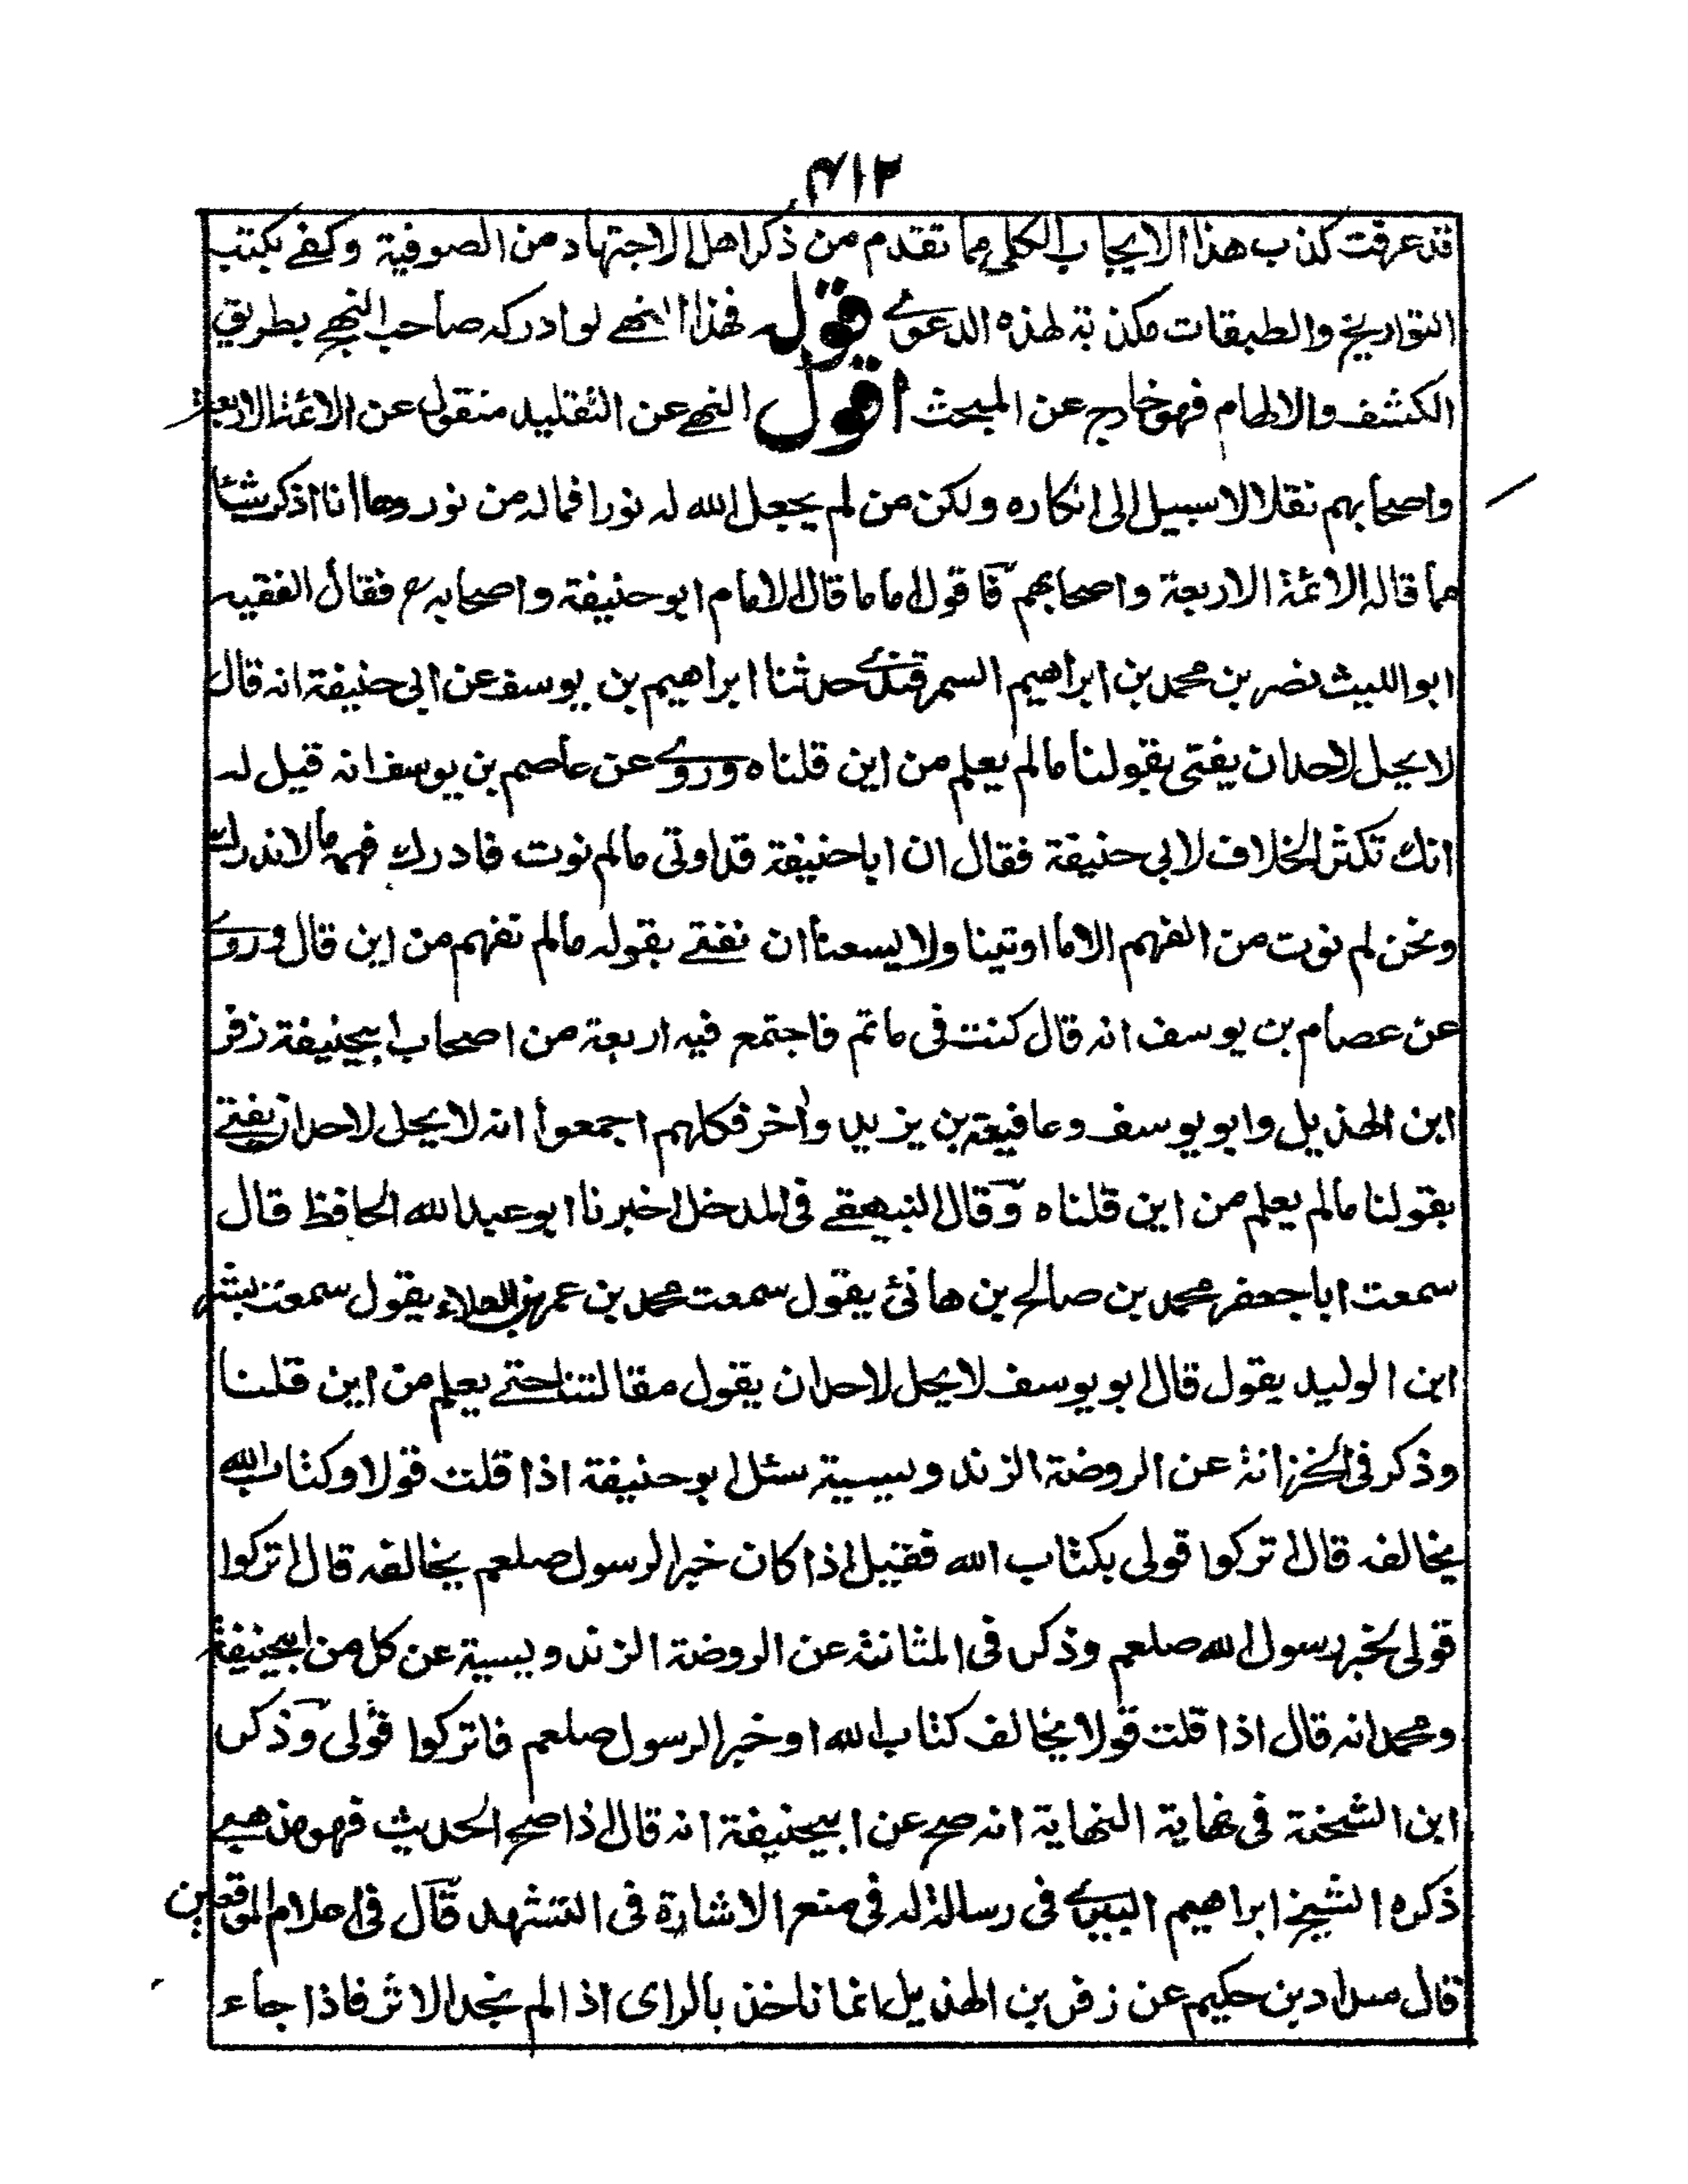 ٤١٢
قد عرفت كذب هذا الايجاب الكلى مما تقدم من ذكر اهل الاجتهاد من الصوفية وكفے بكتب
التواريخ والطبقات مكذبة لهذه الدعوے قوله فهذا النهے لو ادركه صاحب النهے بطريق
الكشف والالهام فهو خارج عن المبحث اقول النهے عن التقليد منقول عن الائمة الاربعة
واصحابهم نقلا لا سبيل الى انكاره ولكن من لم يجعل الله له نورا فما له من نور وها انا اذكر شيئا
مما قاله الائمة الاربعة واصحابهم فاقول اما ما قال الامام ابو حنيفة واصحابه رح فقال الفقيه
ابو الليث نصر بن محمد بن ابراهيم السمرقندے حدثنا ابراهيم بن يوسف عن ابى حنيفة انه قال
لا يحل لاحد ان يفتى بقولنا ما لم يعلم من اين قلناه وروے عن عاصم بن يوسف انه قيل له
انك تكثر الخلاف لابى حنيفة فقال ان ابا حنيفة قد اوتى ما لم نوت فادرك فهمه ما لا ندرك
ونحن لم نوت من الفهم الا ما اوتينا ولا يسعنا ان نفتے بقوله ما لم نفهم من اين قال وروے
عن عصام بن يوسف انه قال كنت فى ماتم فاجتمع فيه اربعة من اصحاب ابيحنيفة زفر
ابن الهذيل وابو يوسف وعافية بن يزيد واخر فكلهم اجمعوا انه لا يحل لاحد ان يفتے
بقولنا ما لم يعلم من اين قلناه وقال البيهقے فى المدخل اخبرنا ابو عبد الله الحافظ قال
سمعت ابا جعفر محمد بن صالح بن هانئ يقول سمعت محمد بن عمر بن العلاء يقول سمعت بشر
ابن الوليد يقول قال ابو يوسف لا يحل لاحد ان يقول مقالتنا حتے يعلم من اين قلنا
وذكر فى الخزانة عن الروضة الزندويسية سئل ابو حنيفة اذا قلت قولا وكتاب الله
يخالفه قال اتركوا قولى بكتاب الله فقيل اذا كان خبر الرسول صلعم يخالفه قال اتركوا
قولى بخبر رسول الله صلعم وذكر فى المتانة عن الروضة الزندويسية عن كل من ابيحنيفة
ومحمد انه قال اذا قلت قولا يخالف كتاب الله او خبر الرسول صلعم فاتركوا قولى وذكر
ابن الشحنة فى نهاية النهاية انه صح عن ابيحنيفة انه قال اذا صح الحديث فهو مذهبے
ذكره الشيخ ابراهيم البيرے فى رسالة له فى منع الاشارة فى التشهد قال فى اعلام الموقعين
قال سداد بن حكيم عن زفر بن الهذيل انما ناخذ بالراى اذا لم نجد الاثر فاذا جاء